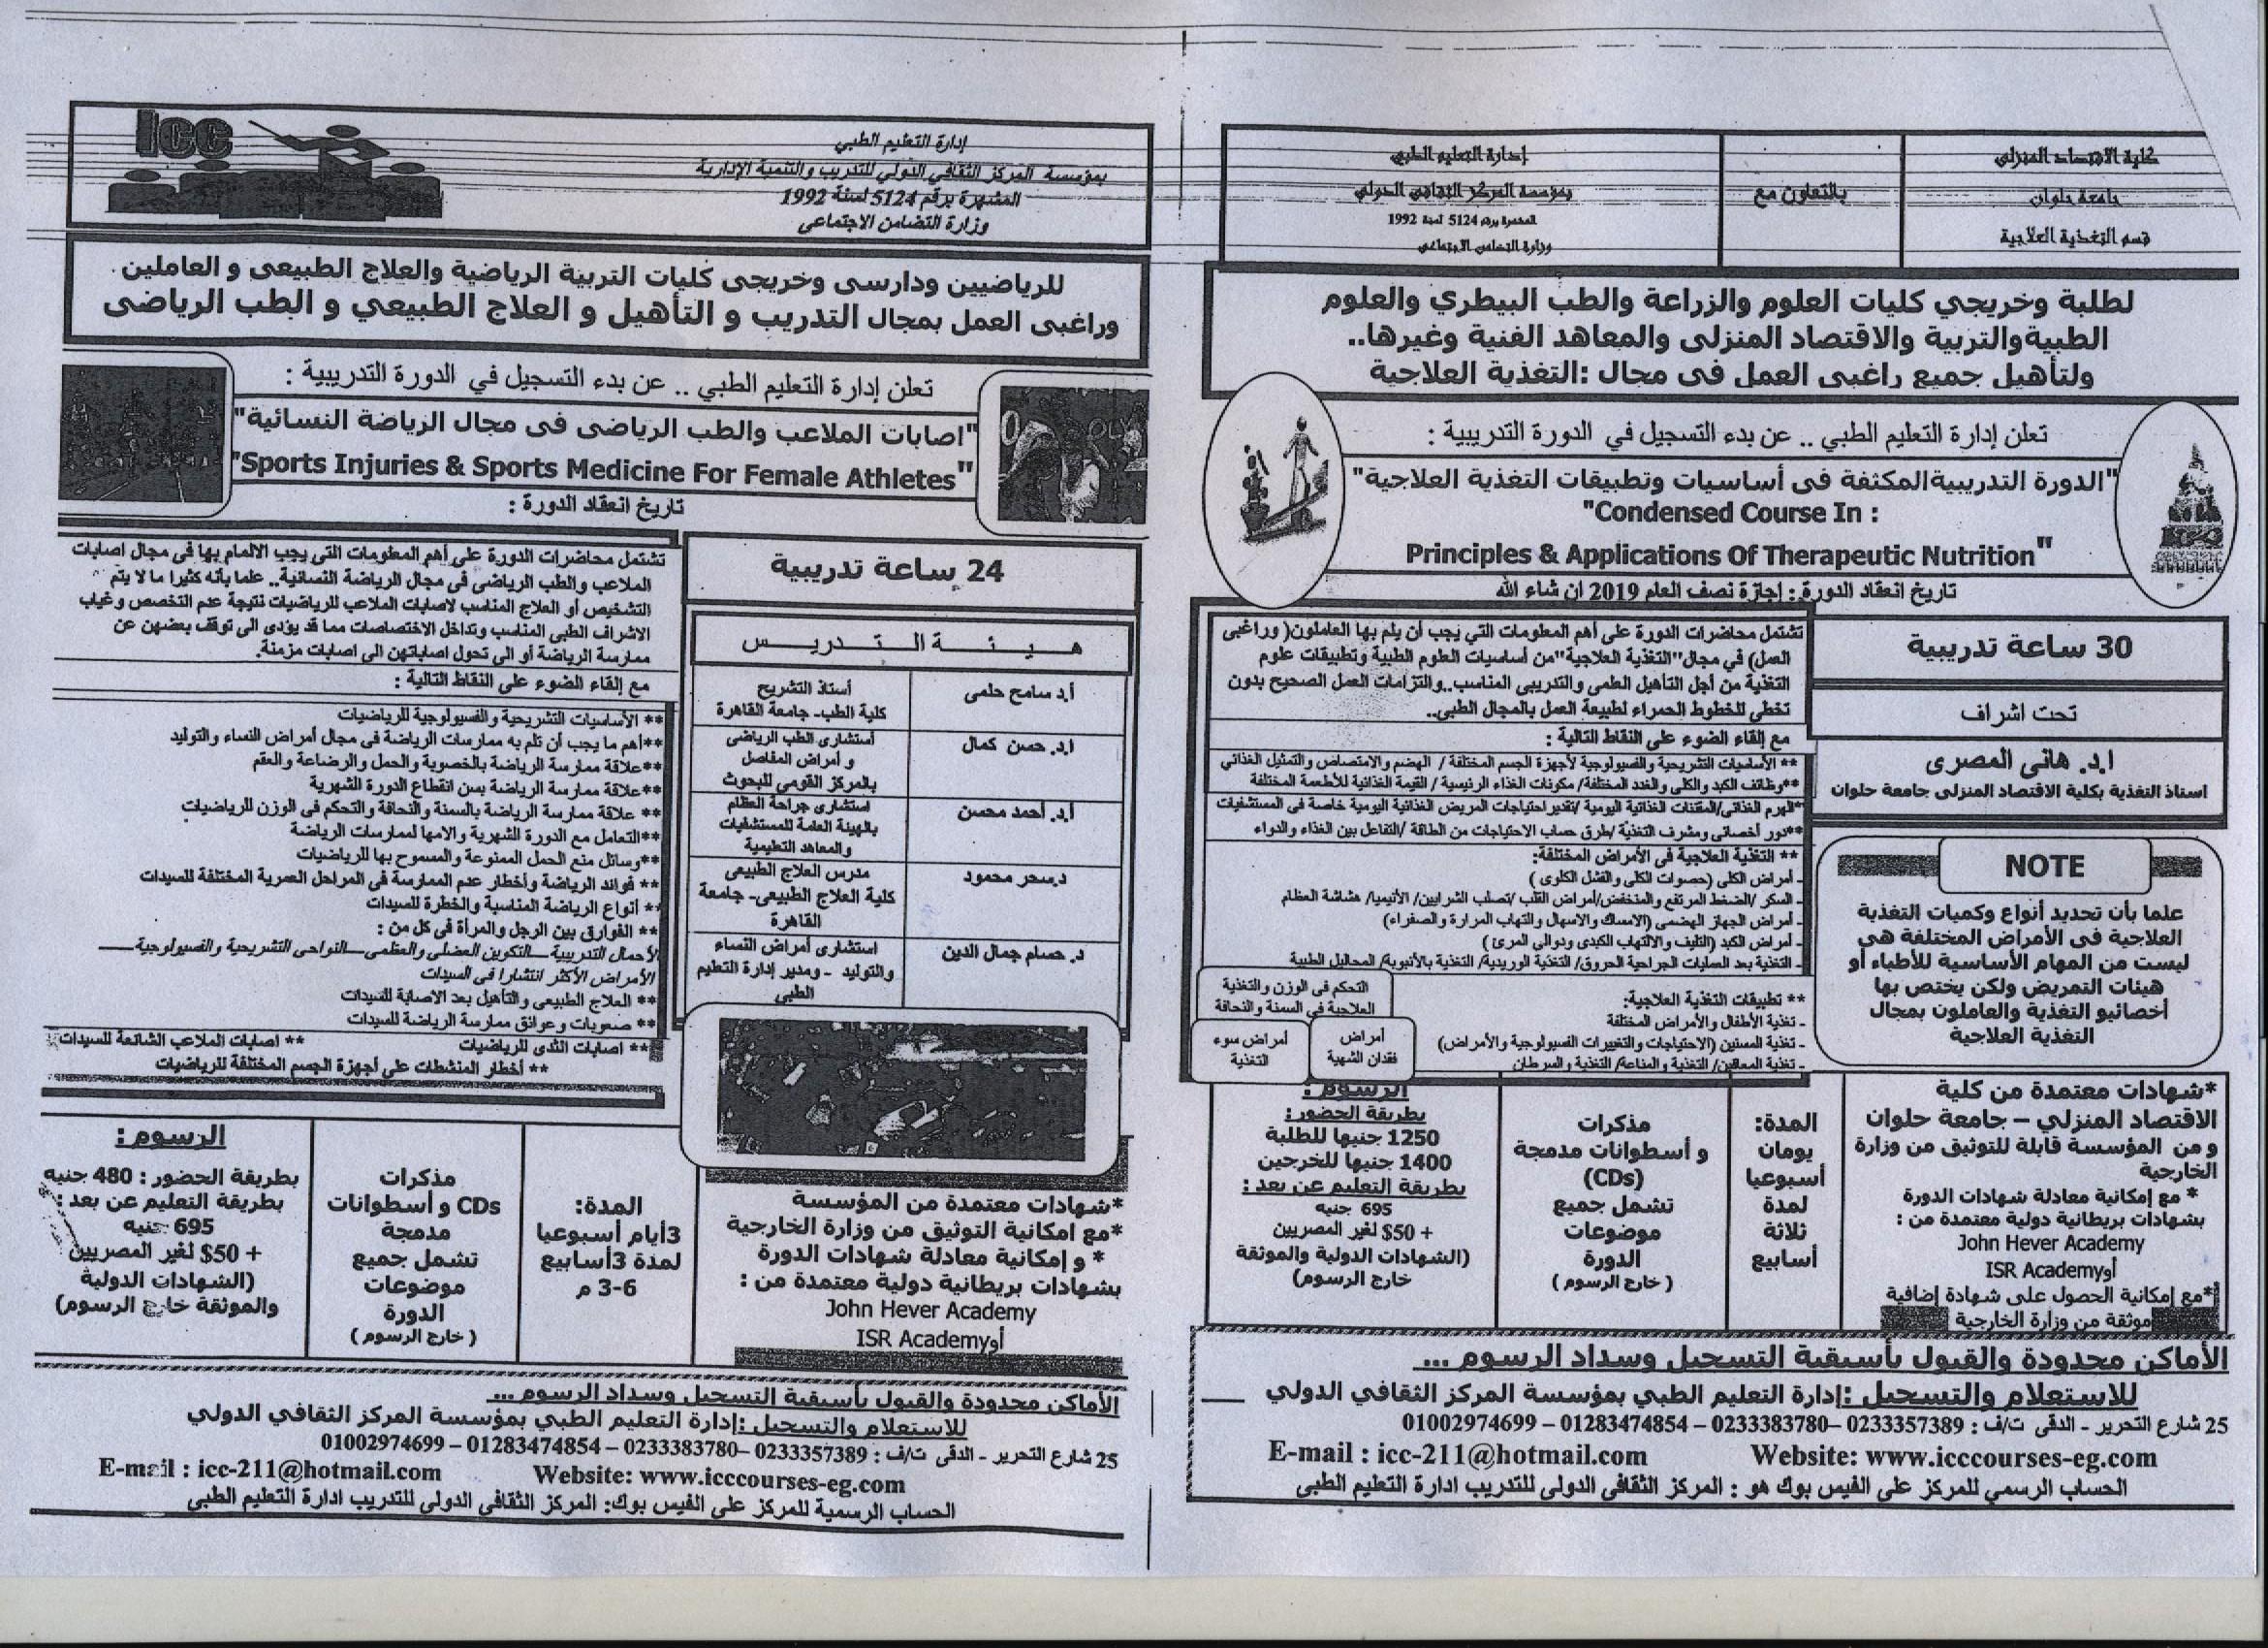 كلية الاقتصاد المنزلى
جامعة حلوان
قسم التغذية العلاجية
بالتعاون مع
إدارة التعليم الطبي
بمؤسسة المركز الثقافي الدولي
المشهرة برقم 5124 لسنة 1992
وزارة التضامن الاجتماعى
لطلبة وخريجي كليات العلوم والزراعة والطب البيطري والعلوم
الطبيةوالتربية والاقتصاد المنزلى والمعاهد الفنية وغيرها..
ولتأهيل جميع راغبى العمل فى مجال :التغذية العلاجية
تعلن إدارة التعليم الطبي .. عن بدء التسجيل في الدورة التدريبية :
"الدورة التدريبيةالمكثفة فى أساسيات وتطبيقات التغذية العلاجية"
"Condensed Course In :
Principles & Applications Of Therapeutic Nutrition"
تاريخ انعقاد الدورة : إجازة نصف العام 2019 ان شاء الله
30 ساعة تدريبية
تحت اشراف
ا.د. هانى المصرى
استاذ التغذية بكلية الاقتصاد المنزلى جامعة حلوان
NOTE
علما بأن تحديد أنواع وكميات التغذية
العلاجية فى الأمراض المختلفة هى
ليست من المهام الأساسية للأطباء أو
هيئات التمريض ولكن يختص بها
أخصائيو التغذية والعاملون بمجال
التغذية العلاجية
تشتمل محاضرات الدورة على أهم المعلومات التي يجب أن يلم بها العاملون( وراغبى
العمل) في مجال"التغذية العلاجية"من أساسيات العلوم الطبية وتطبيقات علوم
التغذية من أجل التأهيل العلمى والتدريبى المناسب..والتزامات العمل الصحيح بدون
تخطى للخطوط الحمراء لطبيعة العمل بالمجال الطبى..
مع إلقاء الضوء على النقاط التالية :
** الأساسيات التشريحية والفسيولوجية لأجهزة الجسم المختلفة / الهضم والامتصاص والتمثيل الغذائي
**وظائف الكبد والكلى والغدد المختلفة/ مكونات الغذاء الرئيسية / القيمة الغذائية للأطعمة المختلفة
**الهرم الغذائى/المقننات الغذائية اليومية /تقدير احتياجات المريض الغذائية اليومية خاصة فى المستشفيات
**دور أخصائى ومشرف التغذية /طرق حساب الاحتياجات من الطاقة /التفاعل بين الغذاء والدواء
** التغذية العلاجية فى الأمراض المختلفة:
- أمراض الكلى (حصوات الكلى والفشل الكلوى )
- السكر /الضغط المرتفع والمنخفض/أمراض القلب /تصلب الشرايين/ الأنيميا/ هشاشة العظام
- أمراض الجهاز الهضمى (الامساك والاسهال والتهاب المرارة والصفراء)
- أمراض الكبد (التليف والالتهاب الكبدى ودوالي المرئ )
- التغذية بعد العمليات الجراحية الحروق/ التغذية الوريدية/ التغذية بالأنبوبة/ المحاليل الطبية
** تطبيقات التغذية العلاجية:
- تغذية الأطفال والأمراض المختلفة
- تغذية المسنين (الاحتياجات والتغييرات الفسيولوجية والأمراض)
- تغذية المعاقين/ التغذية والمناعة/ التغذية والسرطان
التحكم فى الوزن والتغذية
العلاجية في السمنة والنحافة
أمراض
فقدان الشهية
أمراض سوء
التغذية
*شهادات معتمدة من كلية
الاقتصاد المنزلي – جامعة حلوان
و من المؤسسة قابلة للتوثيق من وزارة
الخارجية
* مع إمكانية معادلة شهادات الدورة
بشهادات بريطانية دولية معتمدة من :
John Hever Academy
أوISR Academy
*مع إمكانية الحصول على شهادة إضافية
موثقة من وزارة الخارجية
المدة:
يومان
أسبوعيا
لمدة
ثلاثة
أسابيع
مذكرات
و أسطوانات مدمجة
(CDs)
تشمل جميع
موضوعات
الدورة
( خارج الرسوم )
الرسوم :
بطريقة الحضور :
1250 جنيها للطلبة
1400 جنيها للخرجين
بطريقة التعليم عن بعد :
695 جنيه
+ 50$ لغير المصريين
(الشهادات الدولية والموثقة
خارج الرسوم)
الأماكن محدودة والقبول بأسبقية التسجيل وسداد الرسوم ...
للاستعلام والتسجيل :إدارة التعليم الطبي بمؤسسة المركز الثقافي الدولي
25 شارع التحرير - الدقى ت/ف : 0233357389 –0233383780 – 01283474854 – 01002974699
E-mail : icc-211@hotmail.com Website: www.icccourses-eg.com
الحساب الرسمي للمركز على الفيس بوك هو : المركز الثقافى الدولى للتدريب ادارة التعليم الطبى
Icc
إدارة التعليم الطبي
بمؤسسة المركز الثقافي الدولي للتدريب والتنمية الإدارية
المشهرة برقم 5124 لسنة 1992
وزارة التضامن الاجتماعى
للرياضيين ودارسى وخريجى كليات التربية الرياضية والعلاج الطبيعى و العاملين
وراغبى العمل بمجال التدريب و التأهيل و العلاج الطبيعي و الطب الرياضى
تعلن إدارة التعليم الطبي .. عن بدء التسجيل في الدورة التدريبية :
"اصابات الملاعب والطب الرياضى فى مجال الرياضة النسائية"
"Sports Injuries & Sports Medicine For Female Athletes"
تاريخ انعقاد الدورة :
24 ساعة تدريبية
هـيـئـة الـتـدريـس
أ.د سامح حلمى
أستاذ التشريح
كلية الطب- جامعة القاهرة
ا.د. حسن كمال
أستشارى الطب الرياضى
و أمراض المفاصل
بالمركز القومي للبحوث
أ.د. أحمد محسن
استشارى جراحة العظام
بالهيئة العامة للمستشفيات
والمعاهد التعليمية
د.سحر محمود
مدرس العلاج الطبيعى
كلية العلاج الطبيعى- جامعة
القاهرة
د. حسام جمال الدين
استشارى أمراض النساء
والتوليد - ومدير إدارة التعليم
الطبى
تشتمل محاضرات الدورة على أهم المعلومات التى يجب الالمام بها فى مجال اصابات
الملاعب والطب الرياضى فى مجال الرياضة النسائية.. علما بأنه كثيرا ما لا يتم
التشخيص أو العلاج المناسب لاصابات الملاعب للرياضيات نتيجة عدم التخصص وغياب
الاشراف الطبى المناسب وتداخل الاختصاصات مما قد يؤدى الى توقف بعضهن عن
ممارسة الرياضة أو الى تحول اصاباتهن الى اصابات مزمنة.
مع إلقاء الضوء على النقاط التالية :
** الأساسيات التشريحية والفسيولوجية للرياضيات
**أهم ما يجب أن تلم به ممارسات الرياضة فى مجال أمراض النساء والتوليد
**علاقة ممارسة الرياضة بالخصوبة والحمل والرضاعة والعقم
**علاقة ممارسة الرياضة بسن انقطاع الدورة الشهرية
** علاقة ممارسة الرياضة بالسمنة والنحافة والتحكم فى الوزن للرياضيات
**التعامل مع الدورة الشهرية والامها لممارسات الرياضة
**وسائل منع الحمل الممنوعة والمسموح بها للرياضيات
** فوائد الرياضة وأخطار عدم الممارسة فى المراحل العمرية المختلفة للسيدات
** أنواع الرياضة المناسبة والخطرة للسيدات
** الفوارق بين الرجل والمرأة فى كل من :
الأحمال التدريبية—التكوين العضلى والعظمى—النواحى التشريحية والفسيولوجية—
الأمراض الأكثر انتشارا فى السيدات
** العلاج الطبيعى والتأهيل بعد الاصابة للسيدات
** صعوبات وعوائق ممارسة الرياضة للسيدات
** اصابات الثدى للرياضيات ** اصابات الملاعب الشائعة للسيدات
** أخطار المنشطات على أجهزة الجسم المختلفة للرياضيات
*شهادات معتمدة من المؤسسة
*مع امكانية التوثيق من وزارة الخارجية
* و إمكانية معادلة شهادات الدورة
بشهادات بريطانية دولية معتمدة من :
John Hever Academy
أوISR Academy
المدة:
3أيام أسبوعيا
لمدة 3أسابيع
3-6 م
مذكرات
CDs و أسطوانات
مدمجة
تشمل جميع
موضوعات
الدورة
( خارج الرسوم )
الرسوم :
بطريقة الحضور : 480 جنيه
بطريقة التعليم عن بعد :
695 جنيه
+ 50$ لغير المصريين
(الشهادات الدولية
والموثقة خارج الرسوم)
الأماكن محدودة والقبول بأسبقية التسجيل وسداد الرسوم ...
للاستعلام والتسجيل :إدارة التعليم الطبي بمؤسسة المركز الثقافي الدولي
25 شارع التحرير - الدقى ت/ف : 0233357389 –0233383780 – 01283474854 – 01002974699
E-mail : icc-211@hotmail.com Website: www.icccourses-eg.com
الحساب الرسمية للمركز على الفيس بوك: المركز الثقافي الدولى للتدريب ادارة التعليم الطبى